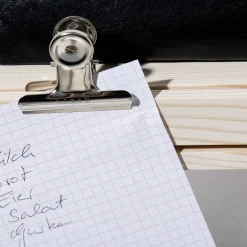 ilch
rot
Eier
Salat
Gurken